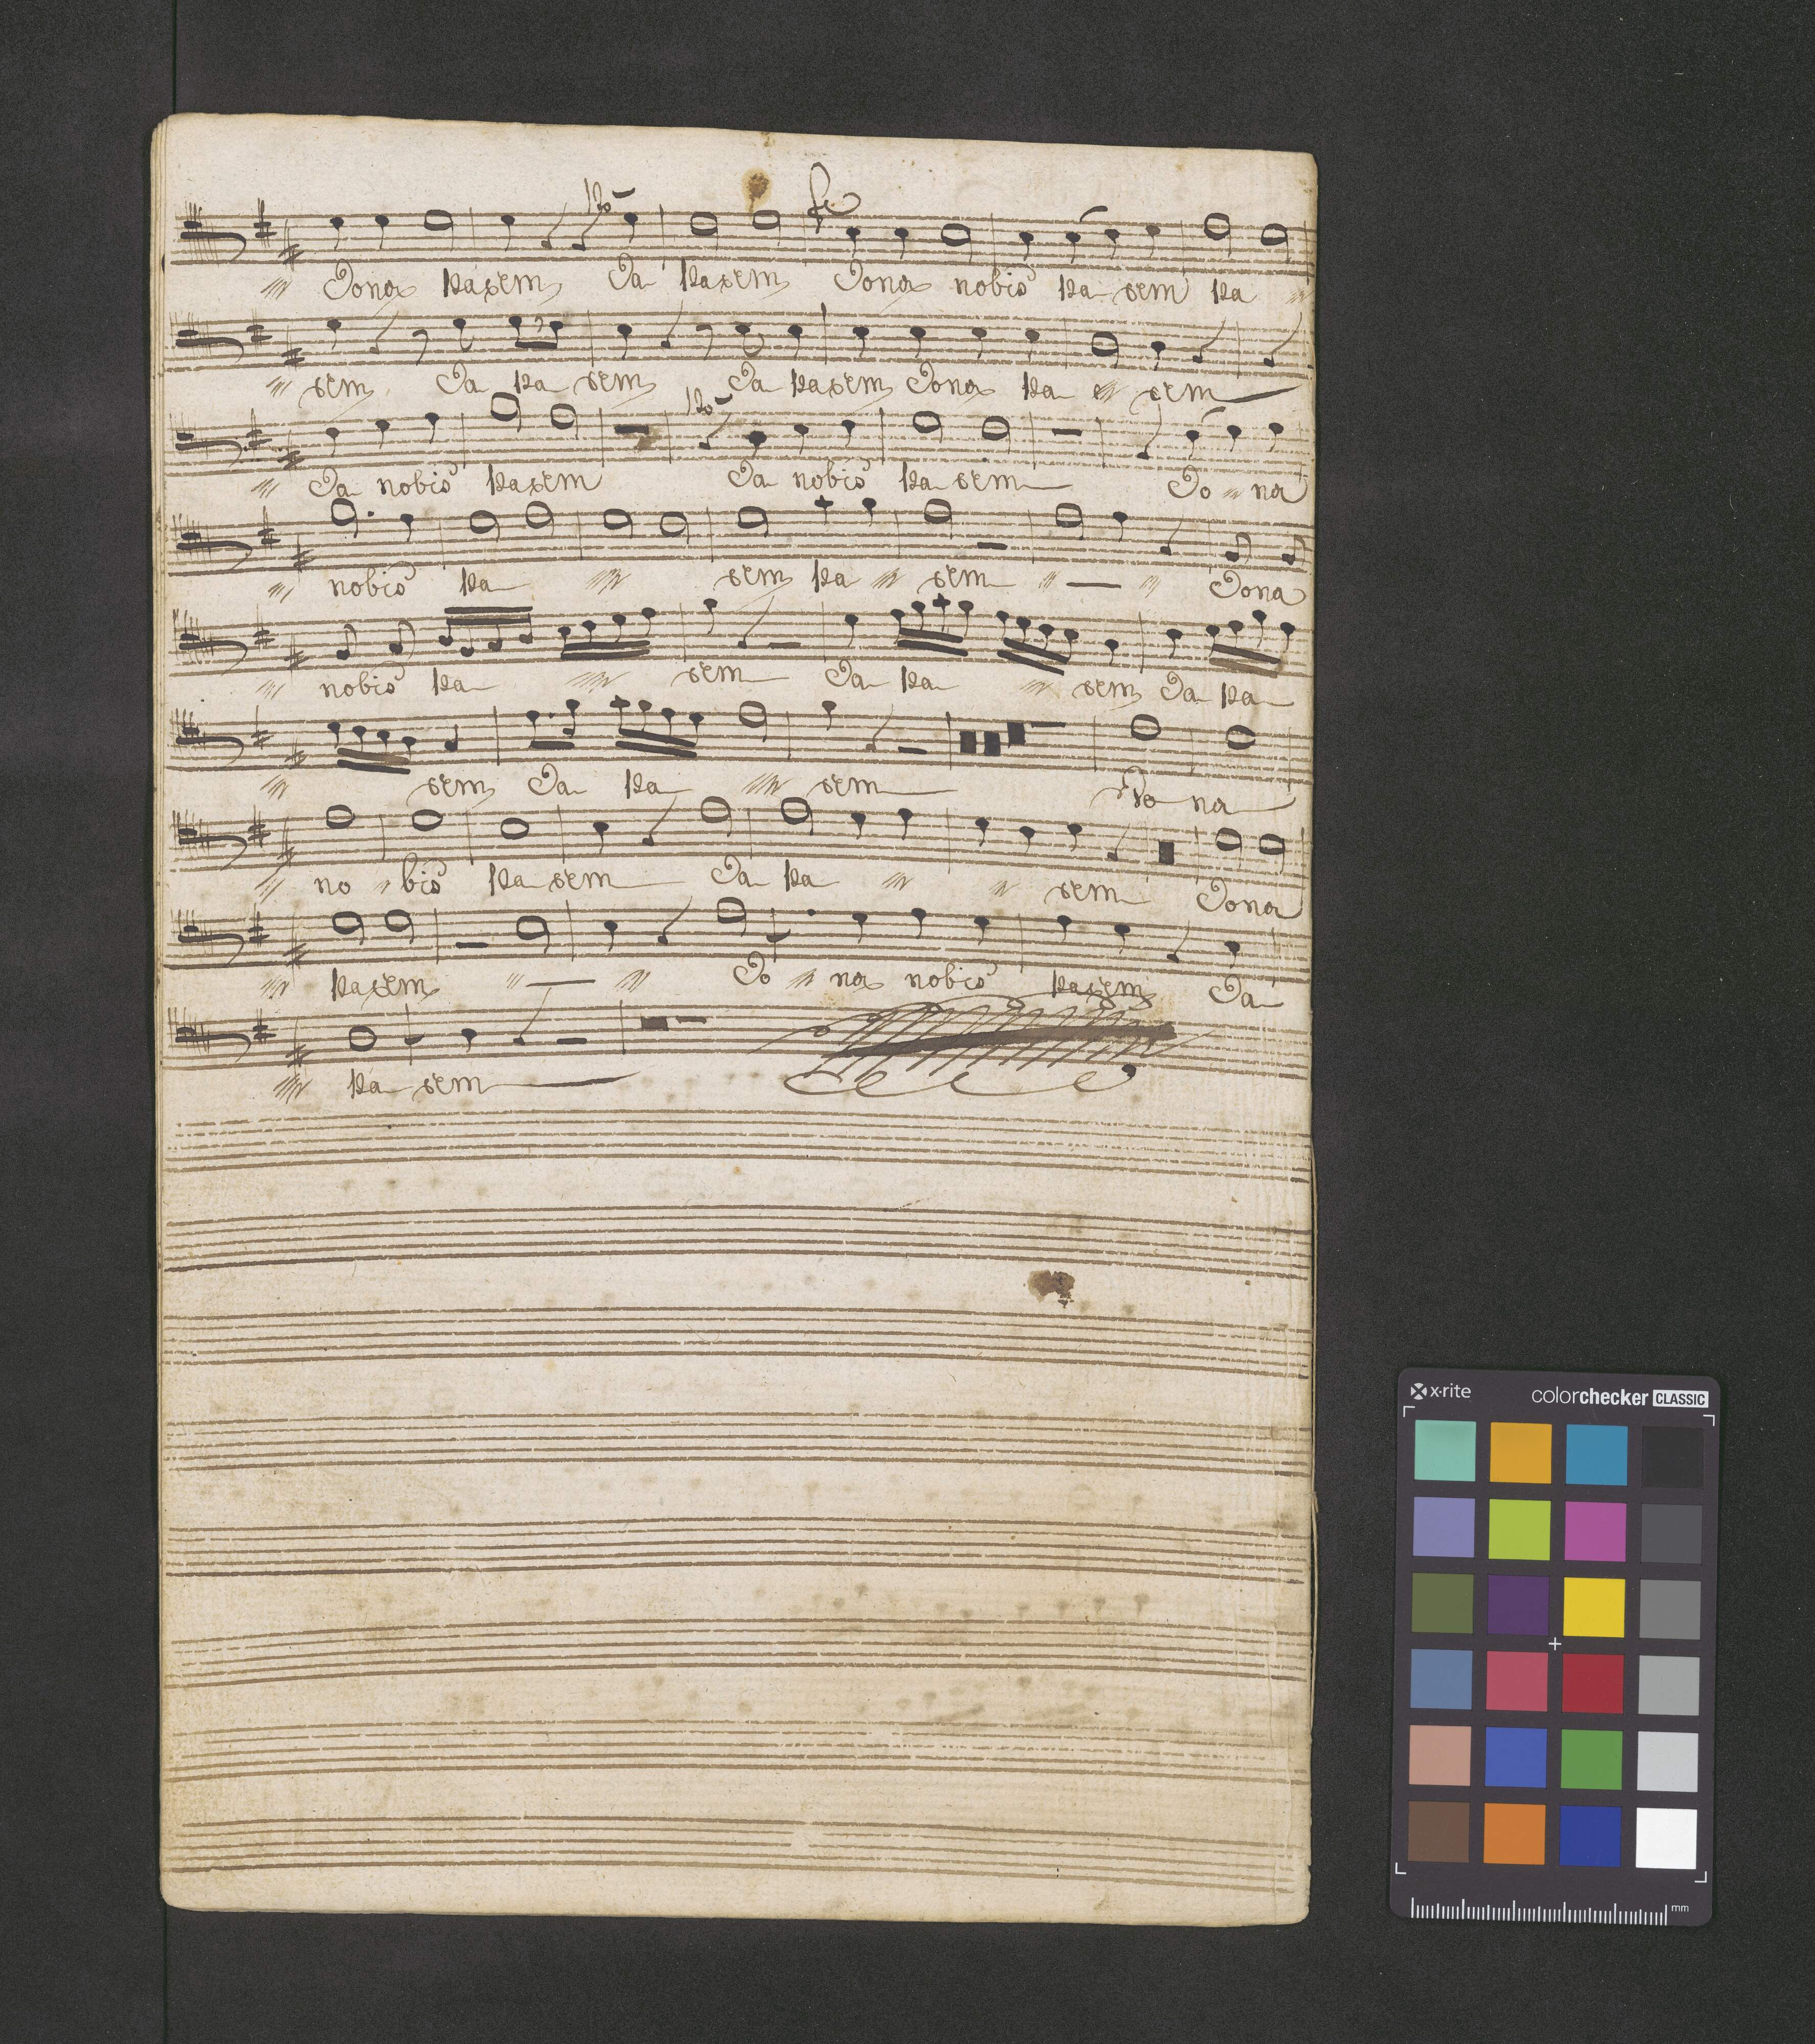 po fe
Dona pacem Da pacem Dona nobis pa cem pa
cem Da pa cem Da pacem Dona pa cem
po
Da nobis pacem Da nobis pa cem Do na
nobis pa cem pa cem Dona
nobis pa cem Da pa cem Da pa
cem Da pa cem Do na
no bis pa cem Da pa cem Dona
pacem Do na nobis pacem Da
pa cem
x-rite colorchecker CLASSIC
mm